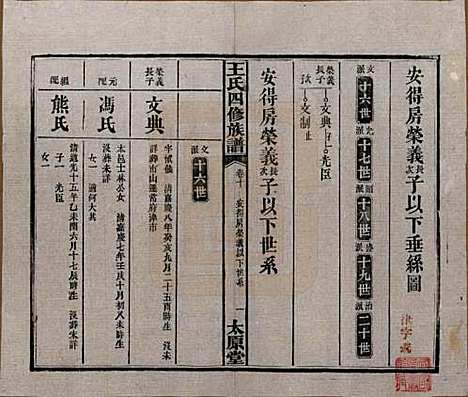 安得房榮義長次子以下垂絲圖
文派十六世
光派十七世
顯派十八世
盛派十九世
治派二十世
榮義長子
文典
光臣
次子
文制
安得房榮義長次子以下世系
王氏四修族譜
卷十
安得房榮義以下世系
一
太原堂
文派十六世
榮義長子
文典
字慎徽
清嘉慶八年癸亥九月二十五酉時生
詳葬市山運當府津市
元配
馮氏
本邑士林公女
清嘉慶七年壬戌十月初八未時生
沒葬未詳
女一
適何大其
繼配
熊氏
清道光十五年乙未閏六月十七長時生
沒葬未詳
子一
光臣